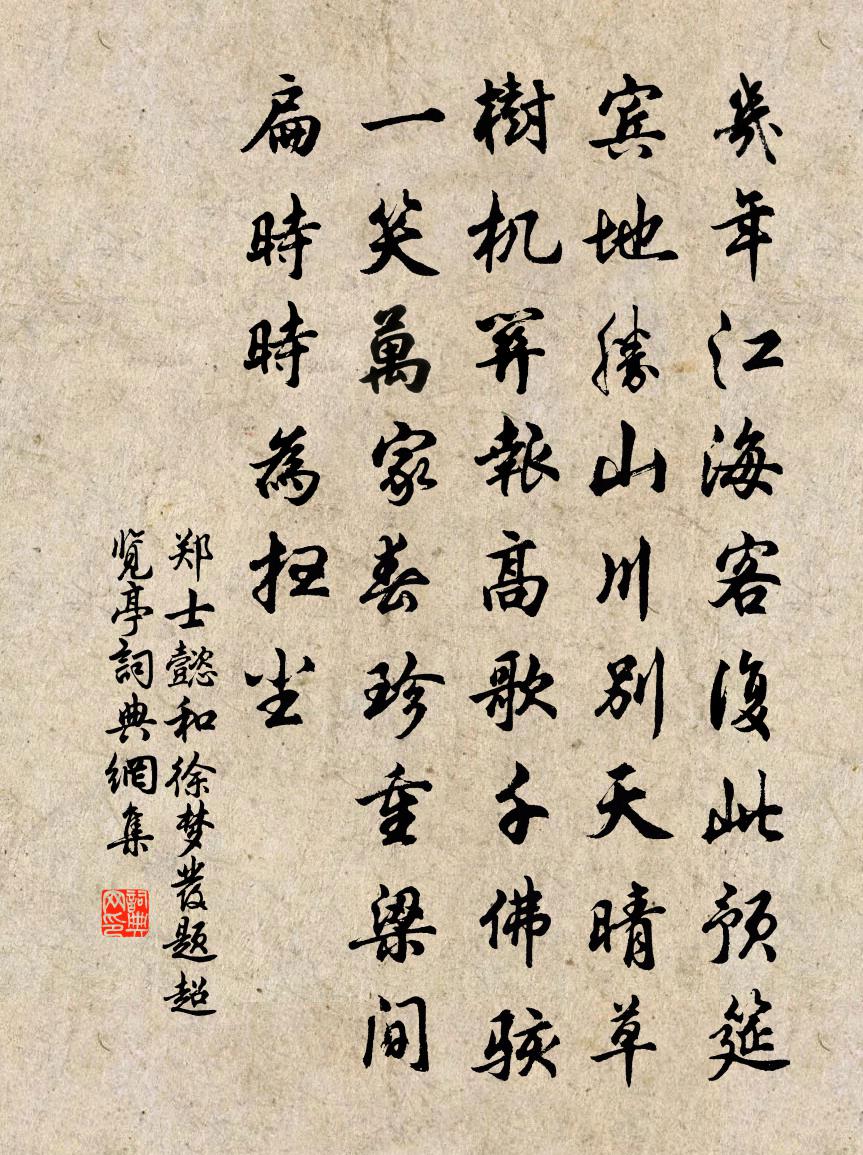 幾年江海客復此預筵
宾地勝山川别天晴草
樹机報高歌千佛駭
一笑萬家春珍重梁间
扁時時為扫尘
郑士懿和徐梦發题超
览亭詞典網集
詞典网印